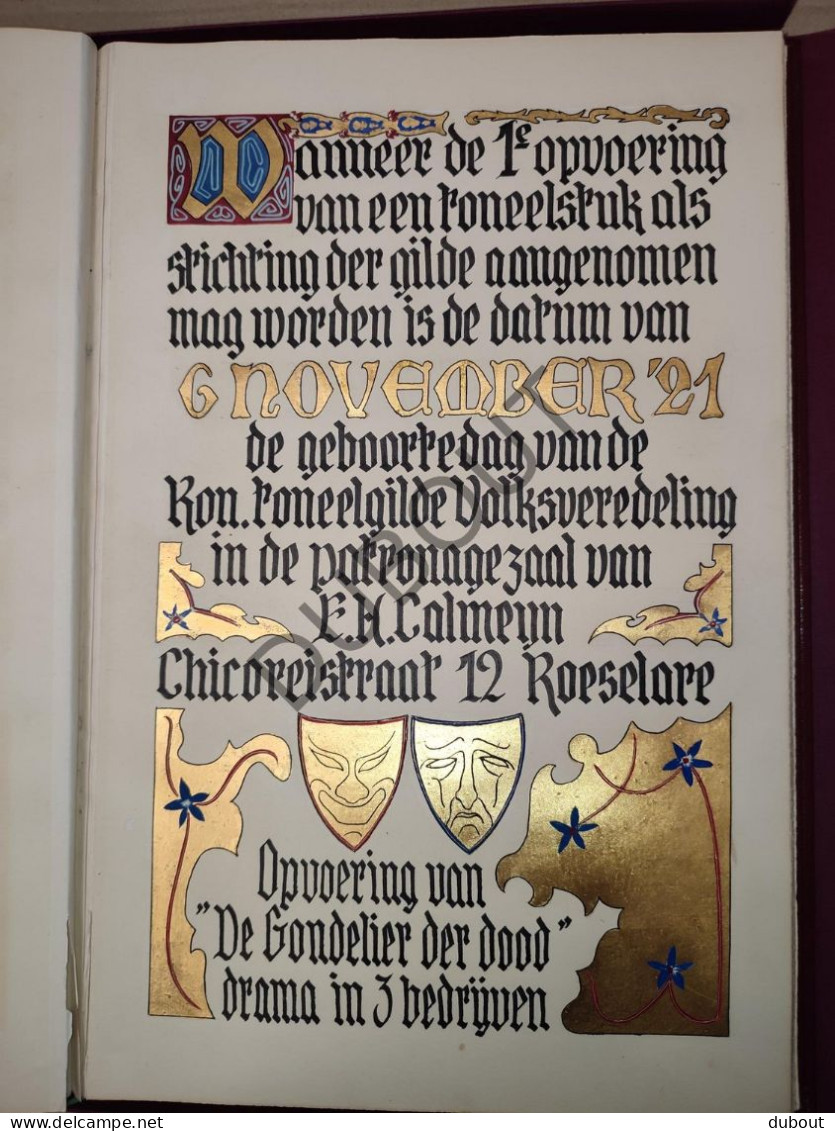 Wanneer de 1e opvoering
van een toneelstuk als
stichting der gilde aangenomen
mag worden is de datum van
6 NOVEMBER '21
de geboortedag van de
Kon. toneelgilde Volksveredeling
in de patronagezaal van
E.H. Calmeyn
Chicoreistraat 12 Roeselare
Opvoering van
"De Gondelier der dood"
drama in 3 bedrijven
DUBOUT
©delcampe.net
dubout